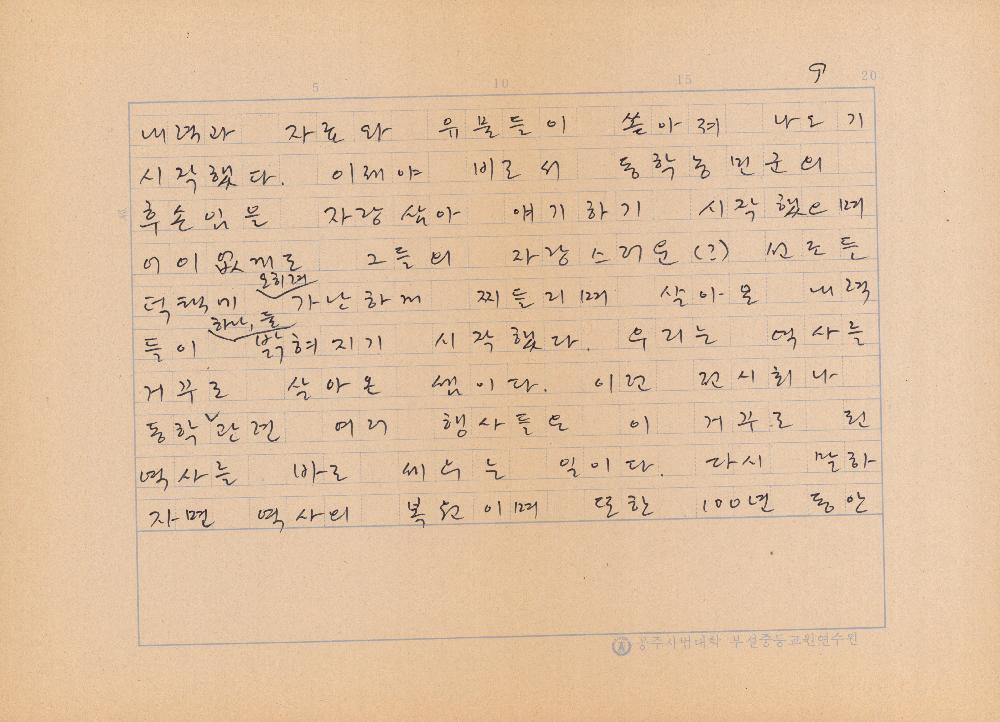 9
5 10 15 20
내력과 자료와 유물들이 쏟아져 나오기
시작했다. 이래야 비로서 동학농민군의
후손임을 자랑삼아 얘기하기 시작했으며
어이없게도 그들의 자랑스러운(그) 선조들
오히려
덕택에 가난하게 찌들리며 살아온 내력
하나, 둘
들이 밝혀지기 시작했다. 우리는 역사를
거꾸로 살아온 셈이다. 이런 전시회나
동학 관련 여러 행사들은 이 거꾸로 된
역사를 바로 세우는 일이다. 다시 말하
자면 역사의 복원이며 또한 100년 동안
공주사범대학 부설중등교원연수원